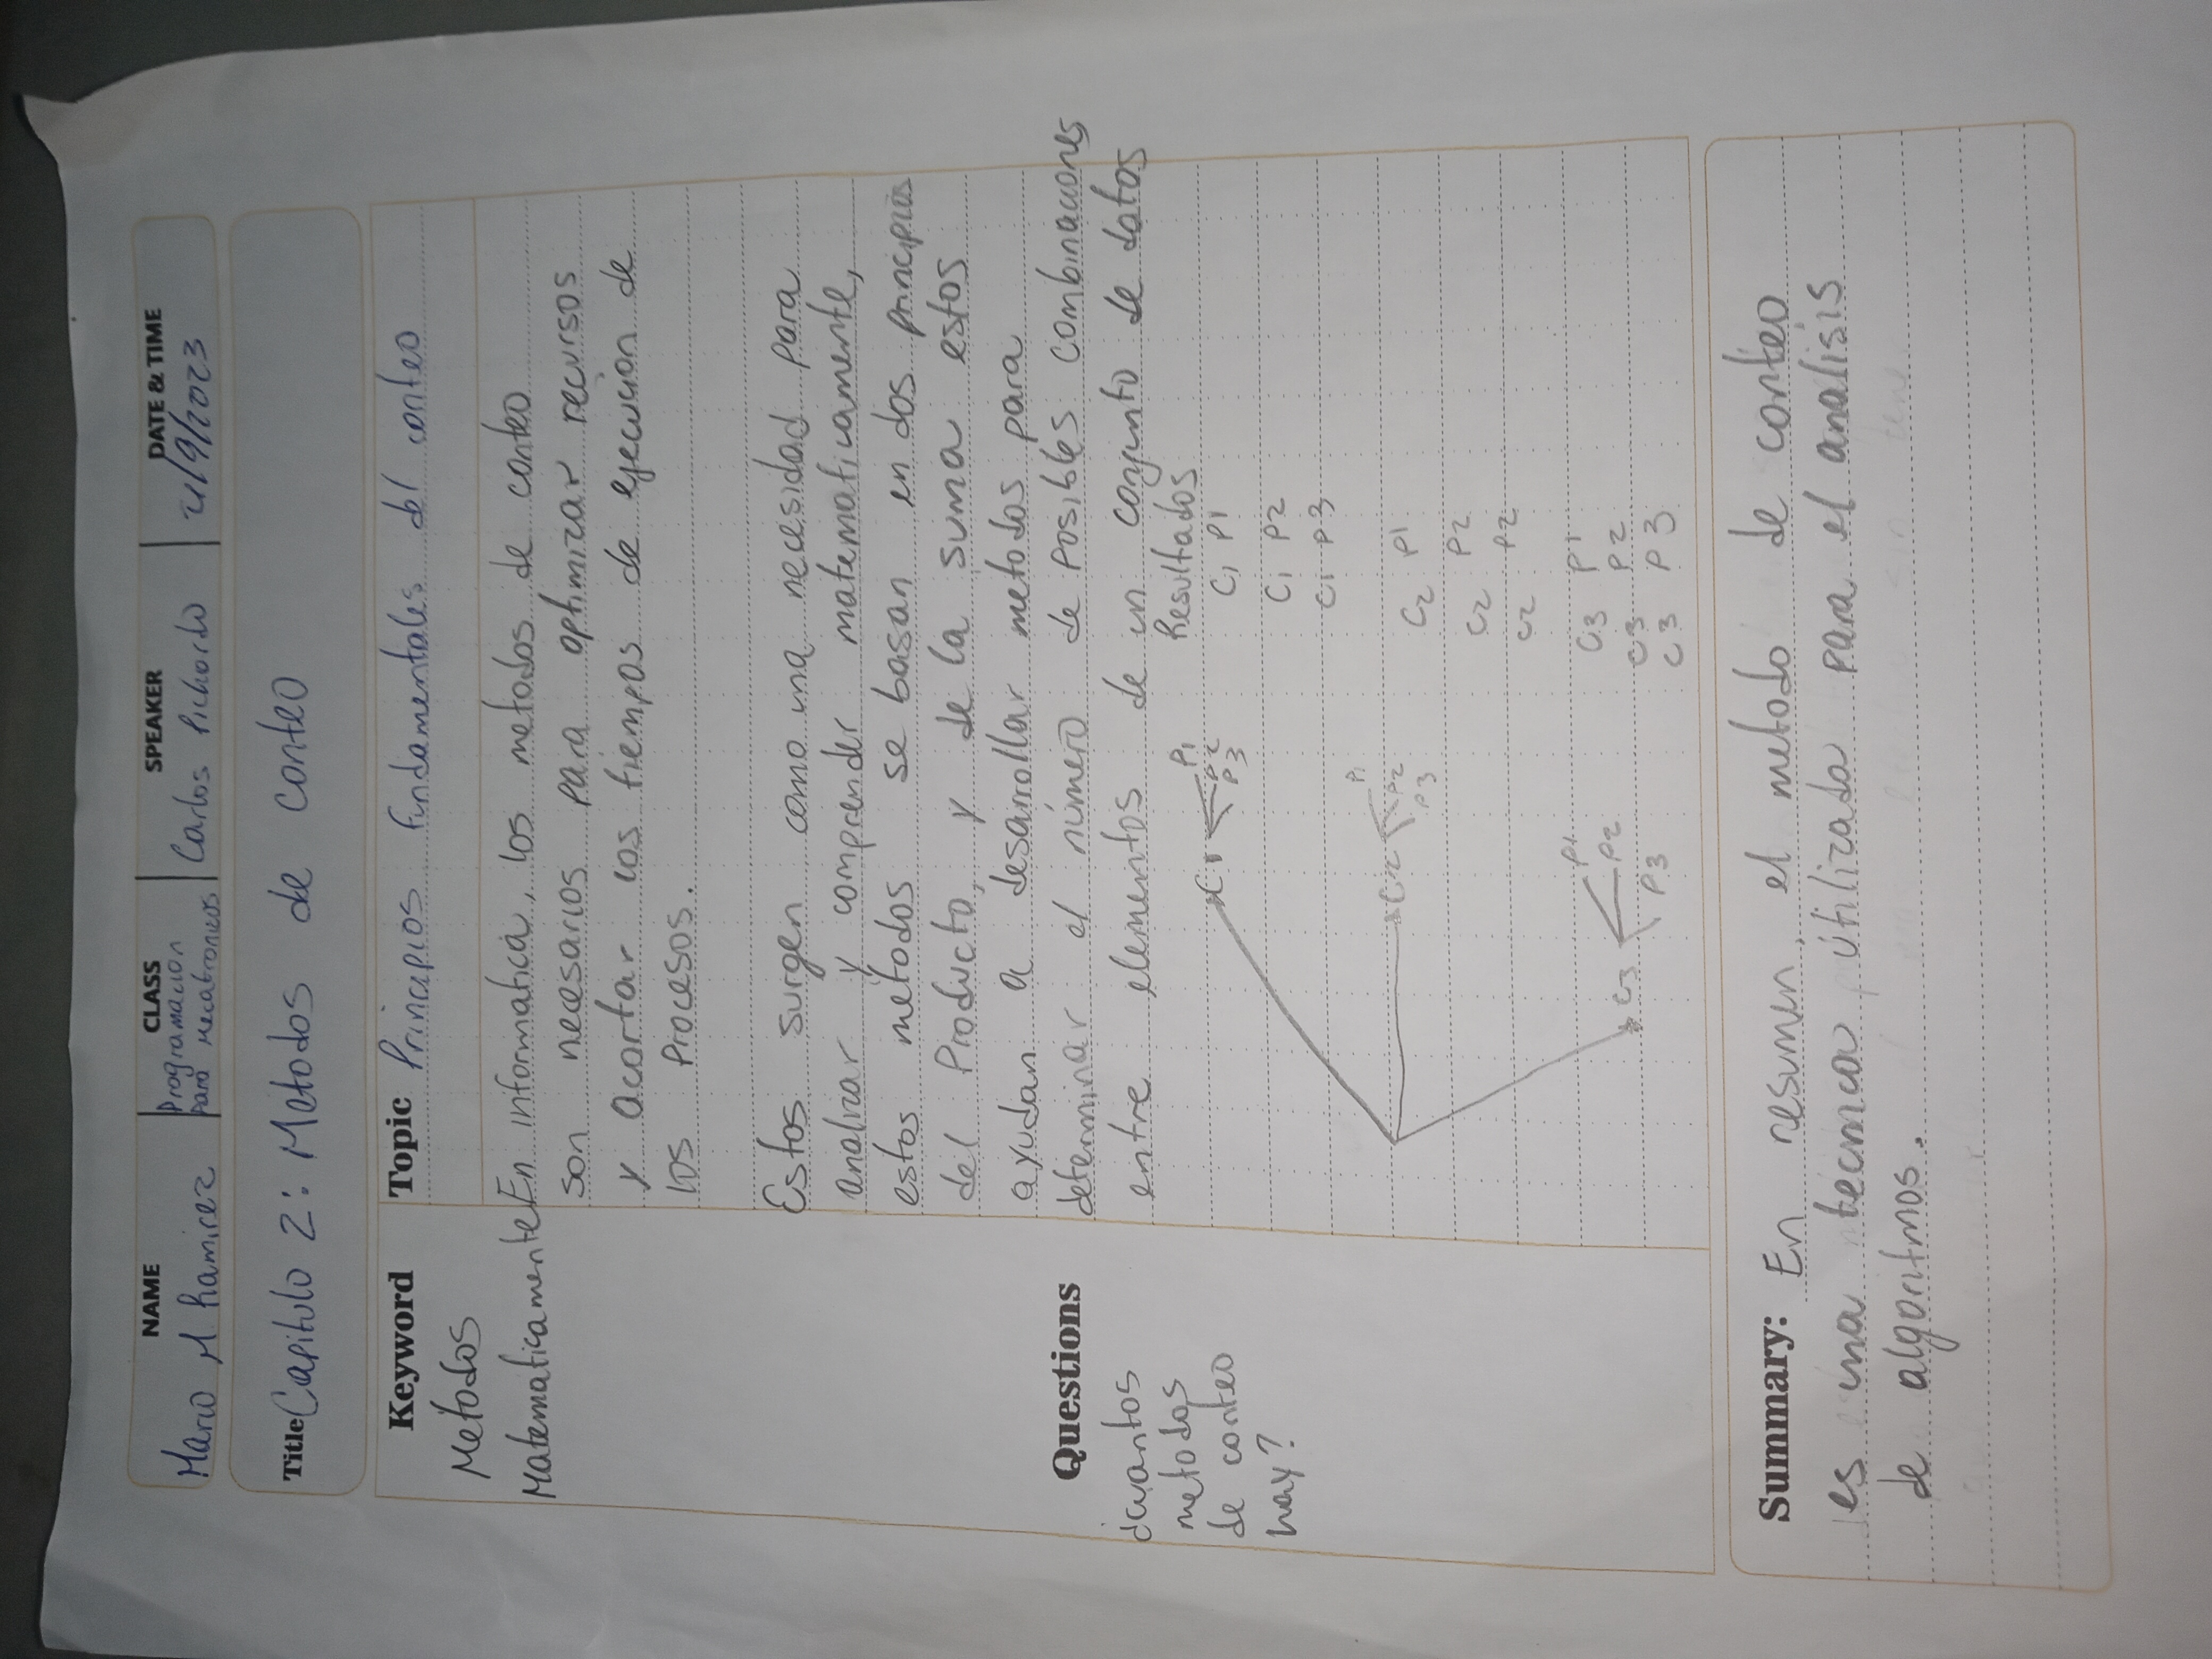 NAME CLASS SPEAKER DATE & TIME
Mario M Ramirez Programacion para mecatronicos Carlos Pichardo 21/9/2023
Title Capitulo 2: Metodos de conteo
Keyword
Metodos
Matematicamente
Topic Principios fundamentales del conteo
En informatica, los metodos de conteo
son necesarios para optimizar recursos
y acortar los tiempos de ejecución de
los procesos.
Estos surgen como una necesidad para
analizar y comprender matematicamente,
estos métodos se basan en dos principios
del Producto, y de la suma estos
ayudan a desarrollar metodos para
determinar el número de posibles combinaciones
entre elementos de un conjunto de datos
Questions
¿cuantos
metodos
de conteo
hay?
Resultados
C1 P1 C1 P1
P2 C1 P2
P3 C1 P3
C2 P1 C2 P1
P2 C2 P2
P3 C2 P2
C3 P1 C3 P1
P2 C3 P2
P3 C3 P3
Summary: En resumen, el metodo de conteo
es una tecnica utilizada para el analisis
de algoritmos.